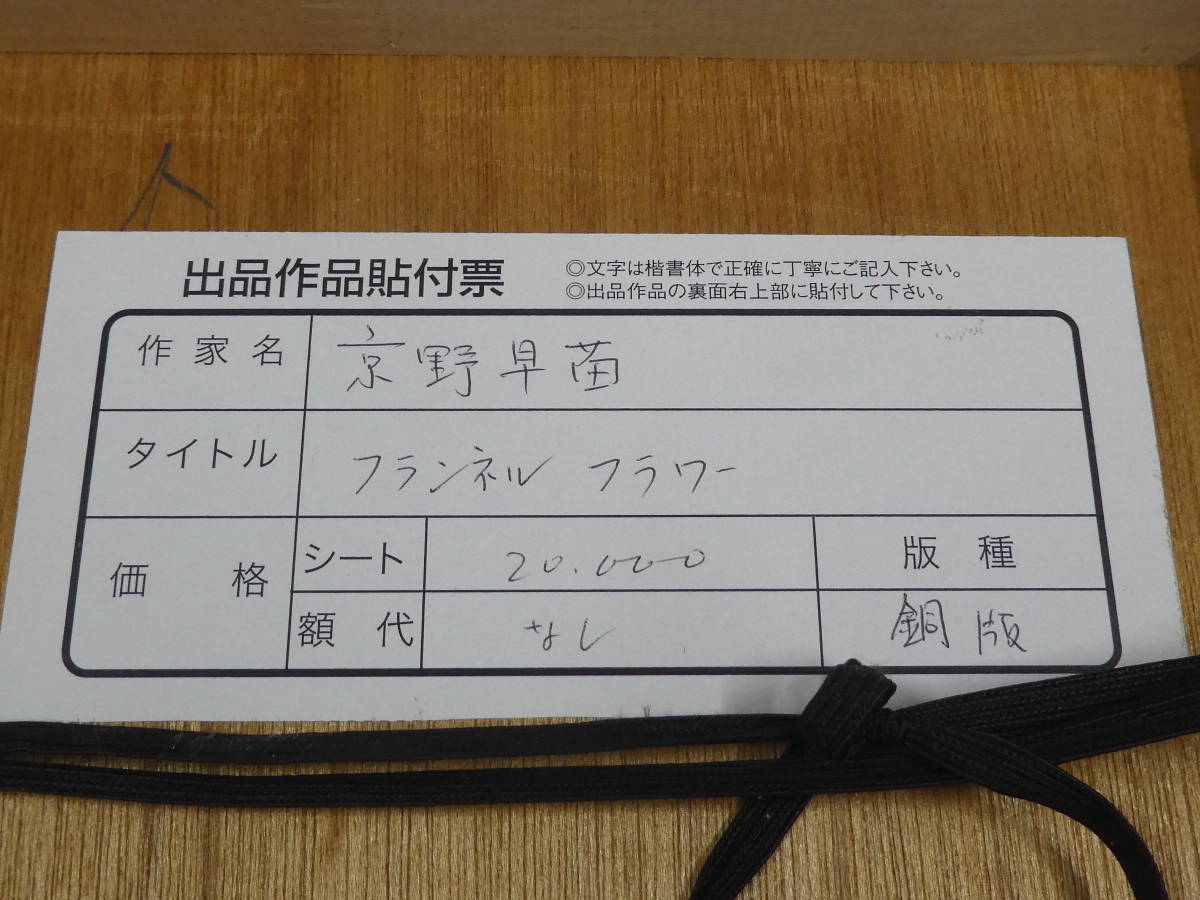 出品作品貼付票
◎文字は楷書体で正確に丁寧にご記入下さい。
◎出品作品の裏面右上部に貼付して下さい。
作家名 京野早苗
タイトル フランネル フラワー
価格 シート 20.000 版種
額代 なし 銅版